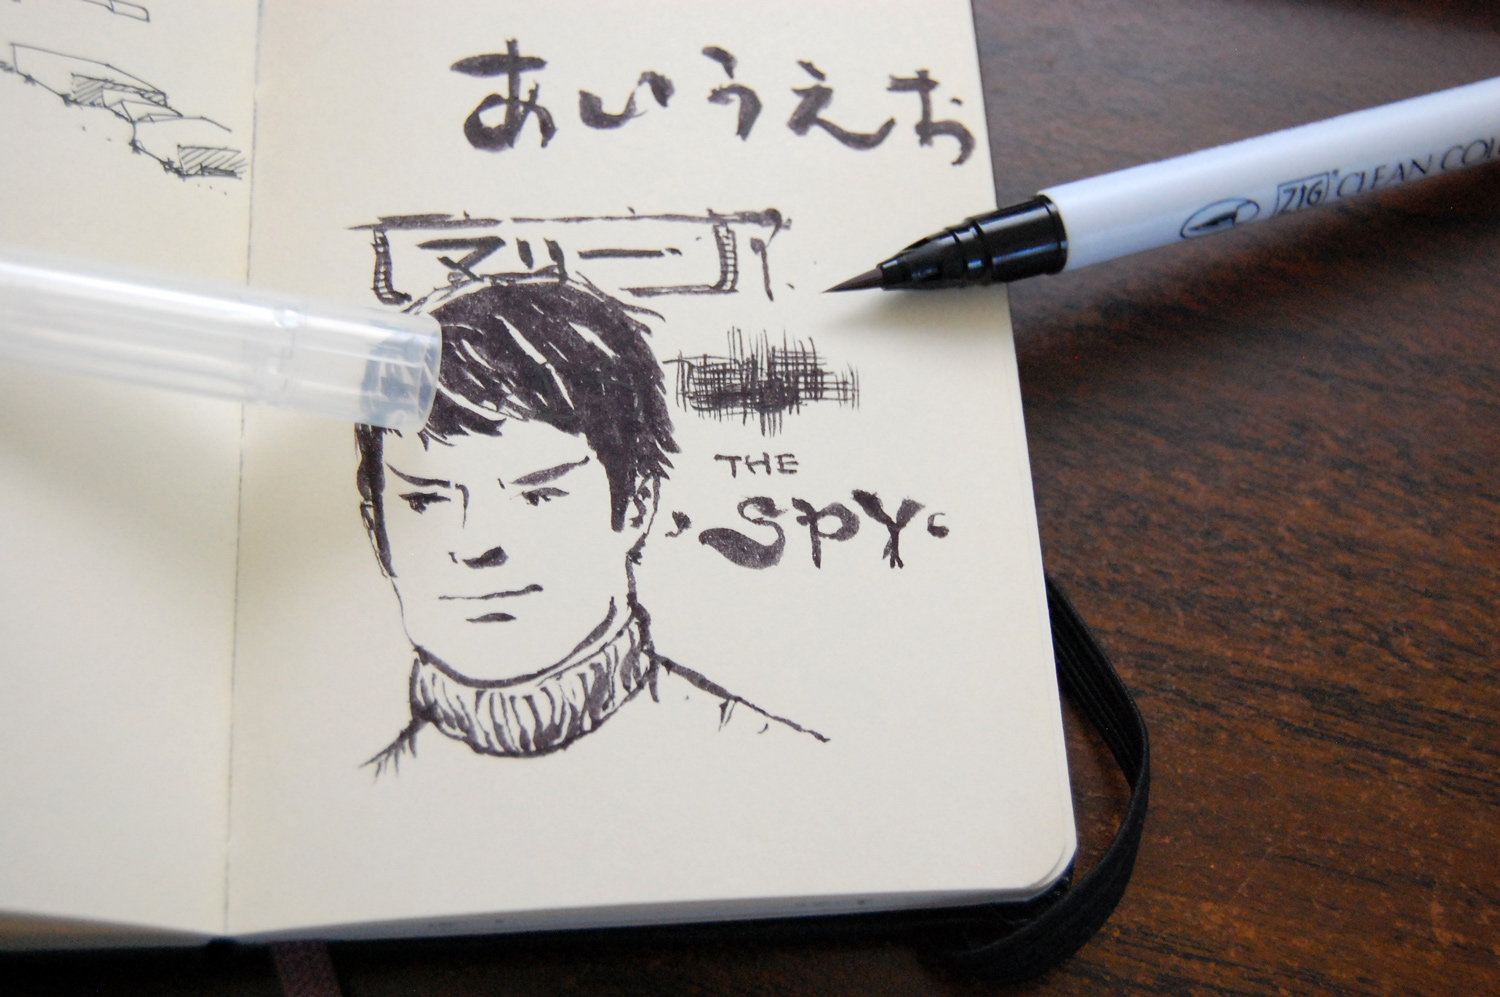 あいうえお
マリー
THE
SPY
ZIG CLEAN COL